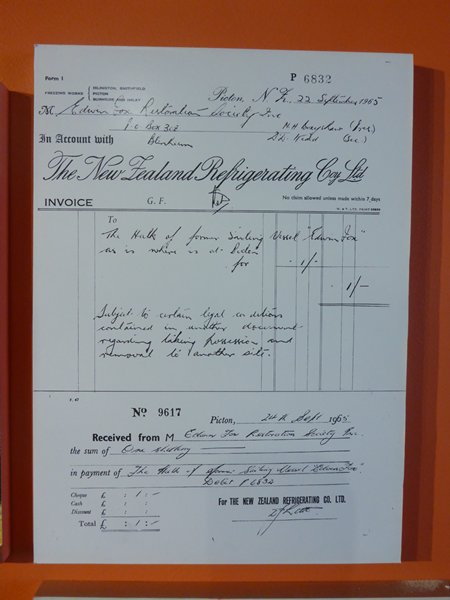 Form 1
P 6832
FREEZING WORKS
ISLINGTON, SMITHFIELD
PICTON
BURNSIDE AND IMLAY
Picton, N Z, 22 September 1965
M Edwin Fox Restoration Society Inc
P.O Box 302
Blenheim
(Pres)
(Sec.)
In Account with
The New Zealand Refrigerating Coy Ltd
INVOICE
G. F.
No claim allowed unless made within 7 days
To
The Hulk of former Sailing Vessel "Edwin Fox"
as is where is at Picton
for 1/-
1/-
Subject to certain legal conditions
contained in another document
regarding taking possession and
removal to another site.
No 9617
Picton, 24th Sept 1965
Received from M Edwin Fox Restoration Society Inc.
the sum of One shilling
in payment of The Hulk of former Sailing Vessel "Edwin Fox"
Debit P 6832
Cheque £ : 1 : -
Cash £ : :
Discount £ : :
Total £ : 1 : -
For THE NEW ZEALAND REFRIGERATING CO. LTD.